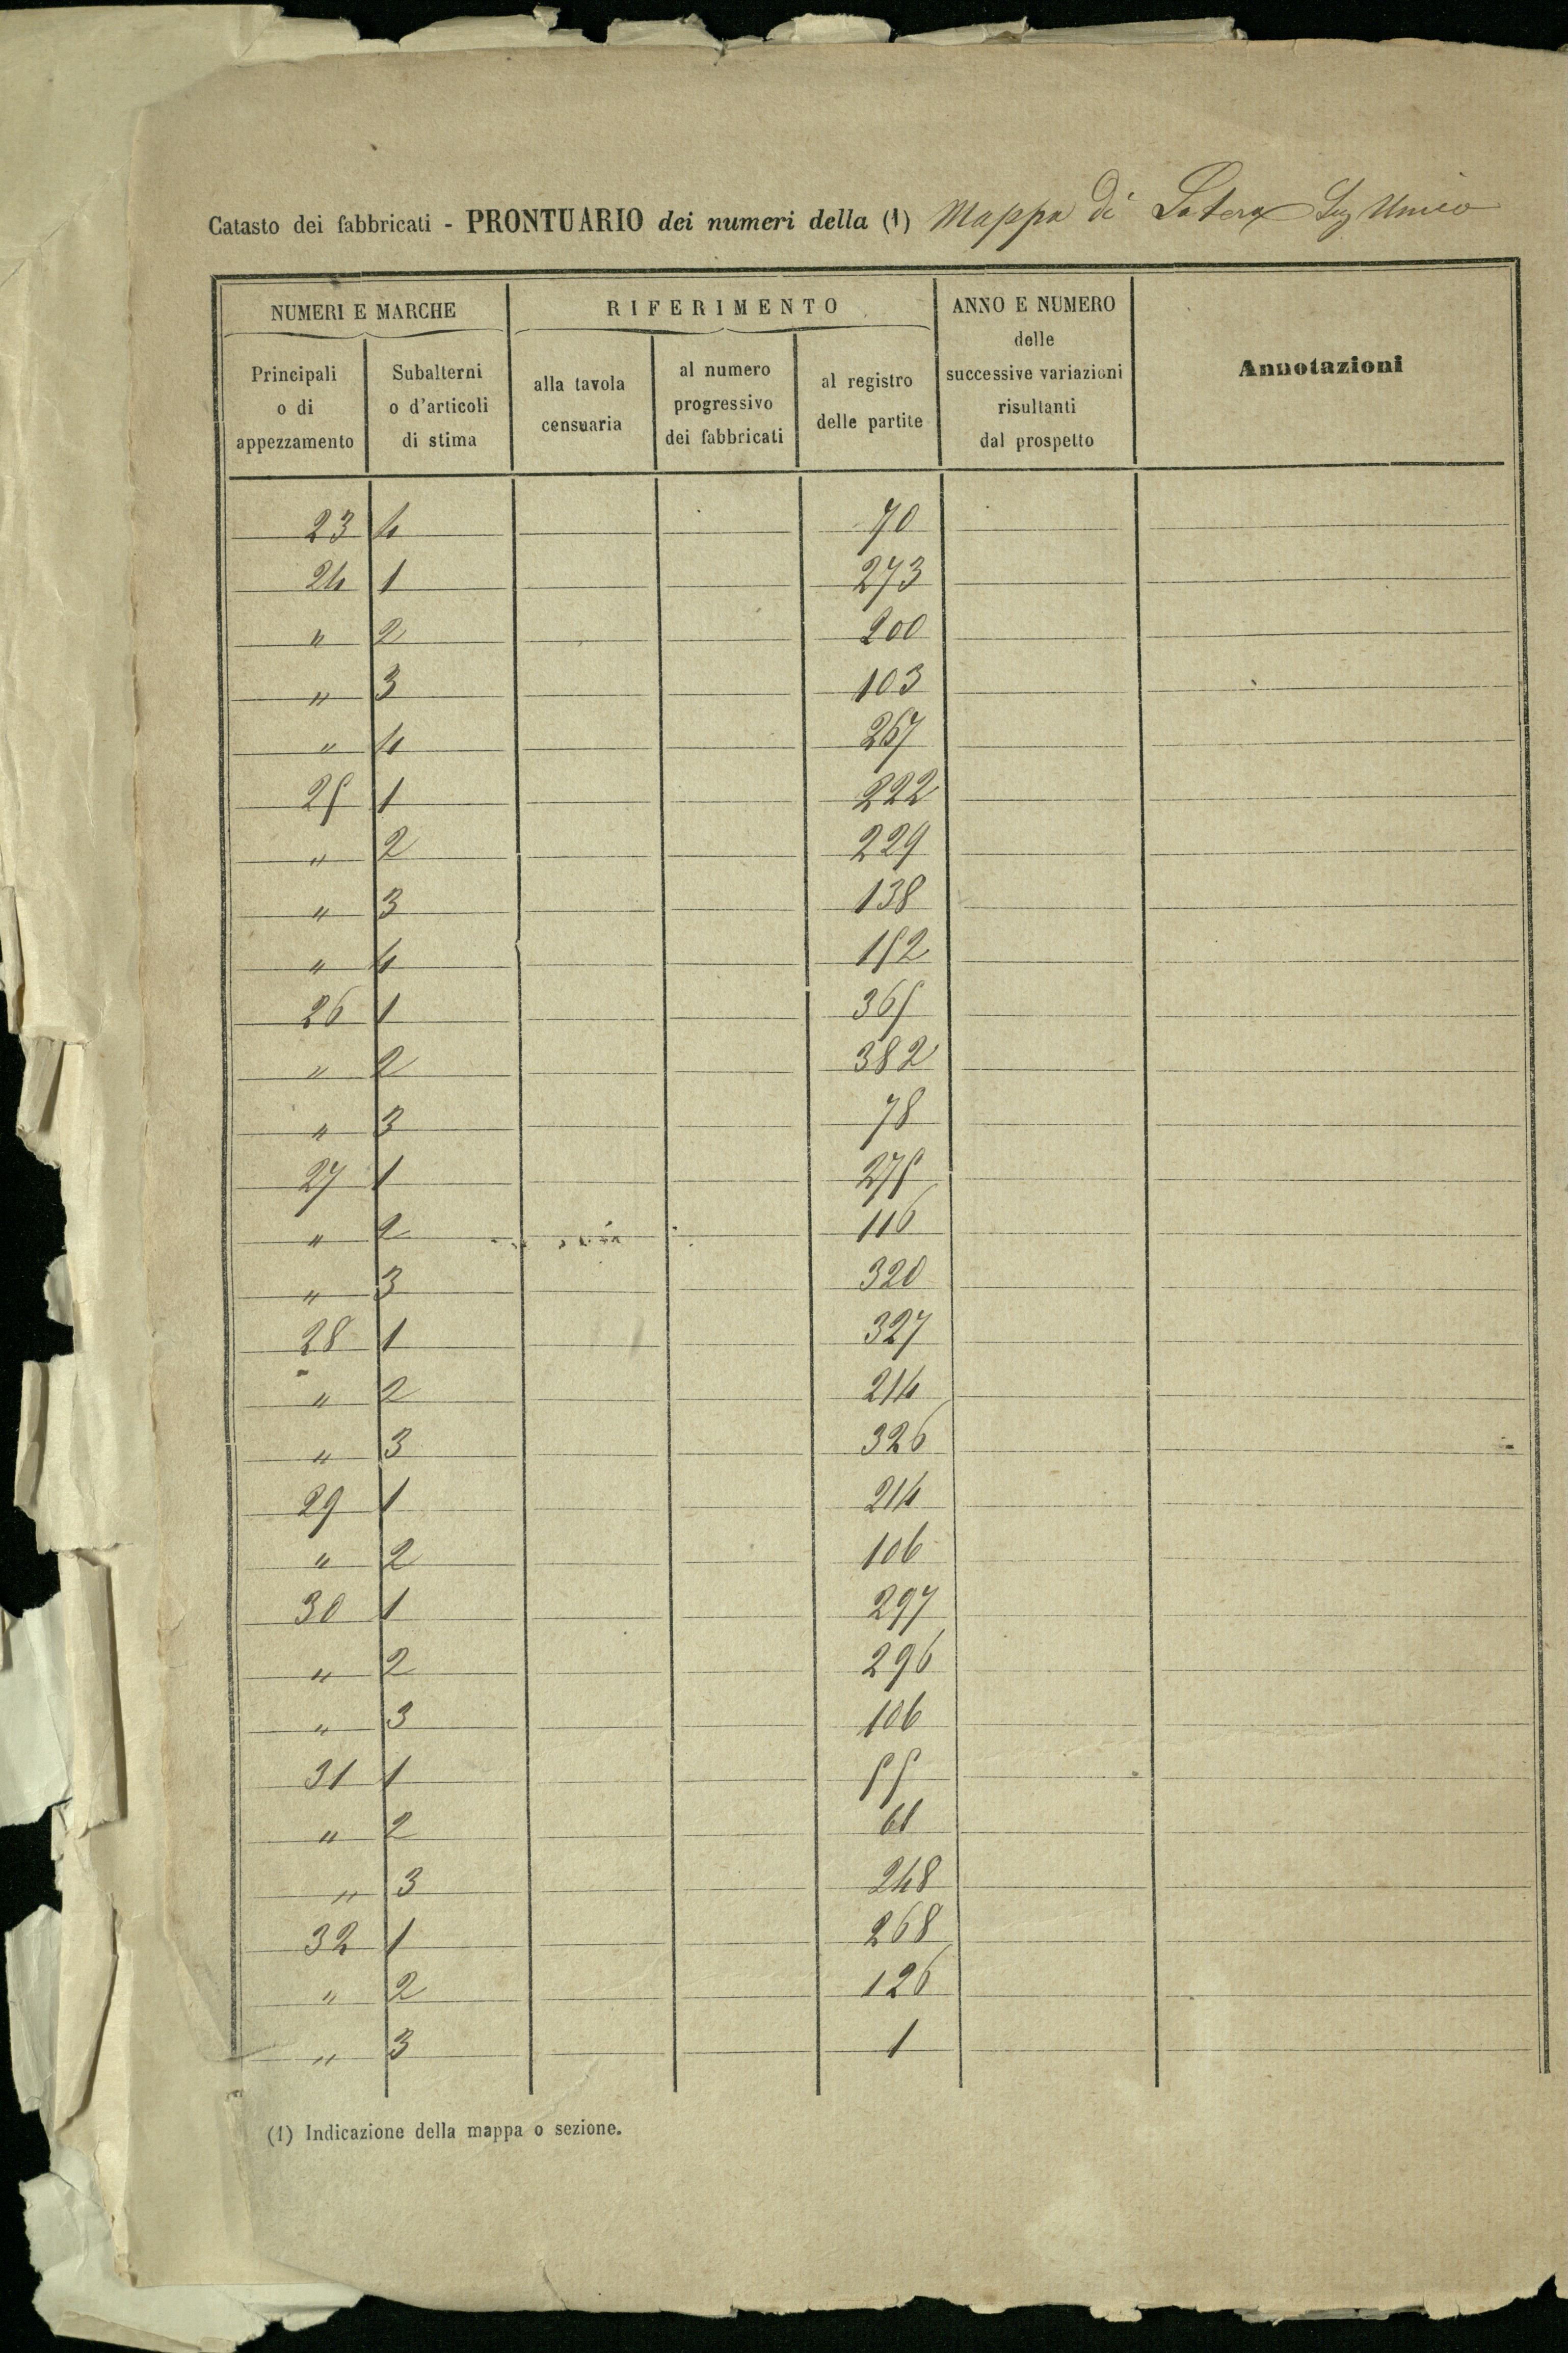 Catasto dei fabbricati - PRONTUARIO dei numeri della (1) Mappa di Latera Sez Unico
NUMERI E MARCHE
RIFERIMENTO
ANNO E NUMERO
delle
successive variazioni
risultanti
dal prospetto
Annotazioni
Principali
o di
appezzamento
Subalterni
o d'articoli
di stima
alla tavola
censuaria
al numero
progressivo
dei fabbricati
al registro
delle partite
23 4 70
24 1 273
" 2 200
" 3 103
" 4 267
25 1 222
" 2 229
" 3 138
" 4 152
26 1 365
" 2 382
" 3 78
27 1 275
" 2 116
" 3 320
28 1 327
" 2 214
" 3 326
29 1 214
" 2 106
30 1 297
" 2 296
" 3 106
31 1 55
" 2 61
" 3 248
32 1 268
" 2 126
" 3 1
(1) Indicazione della mappa o sezione.